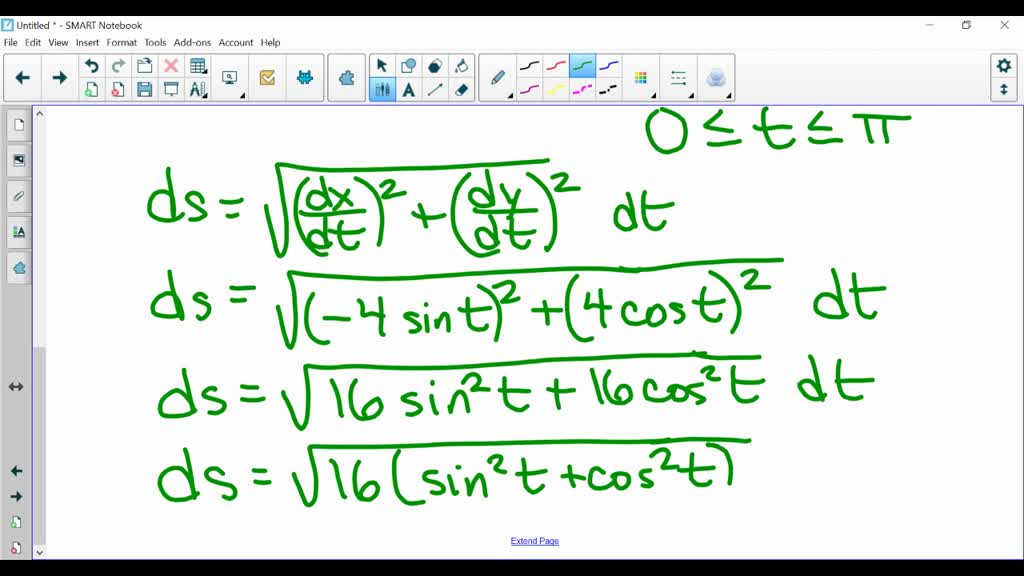 Untitled * - SMART Notebook
File Edit View Insert Format Tools Add-ons Account Help
0 ≤ t ≤ π
ds = √((dx/dt)² + (dy/dt)²) dt
ds = √((-4 sin t)² + (4 cos t)²) dt
ds = √(16 sin² t + 16 cos² t) dt
ds = √(16(sin² t + cos² t))
Extend Page